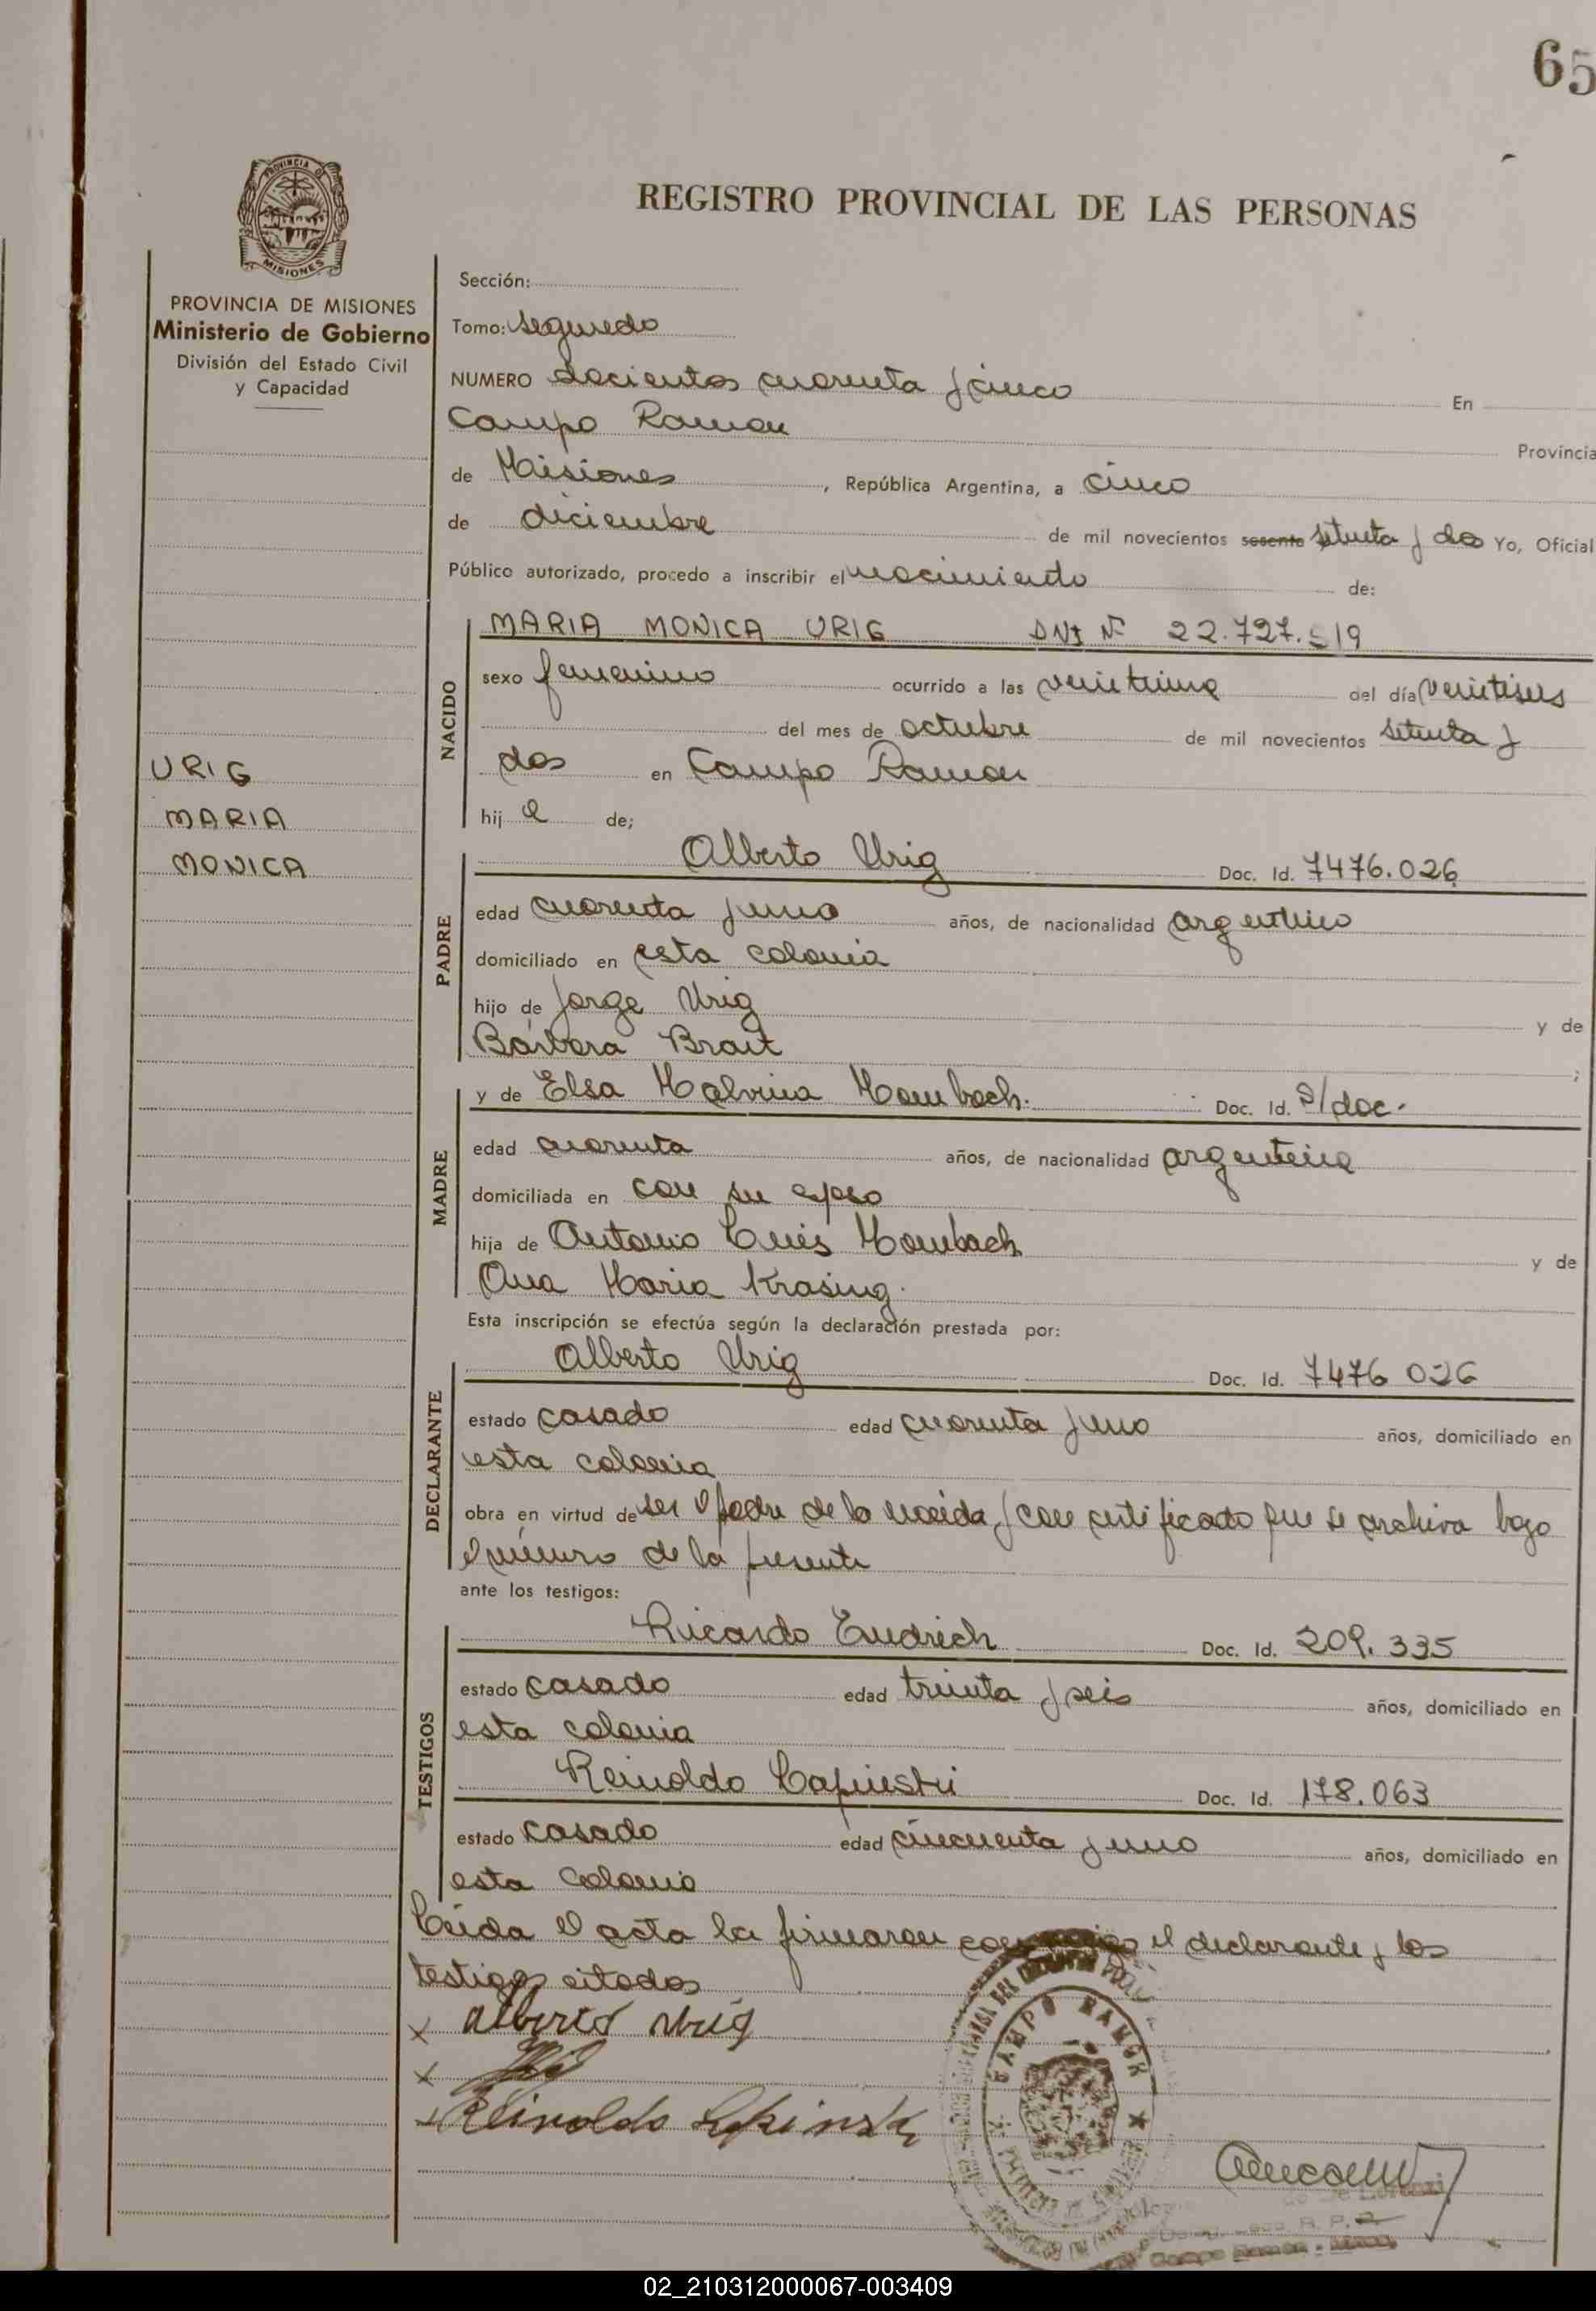 65
REGISTRO PROVINCIAL DE LAS PERSONAS
PROVINCIA DE
MISIONES
PROVINCIA DE MISIONES
Ministerio de Gobierno
División del Estado Civil
y Capacidad
URIG
MARIA
MONICA
Sección:
Tomo: Segundo
NUMERO docientos cuarenta y cinco En
Campo Ramon Provincia
de Misiones, República Argentina, a cinco
de diciembre de mil novecientos sesenta setenta y dos Yo, Oficial
Público autorizado, procedo a inscribir el nacimiento de:
NACIDO
MARIA MONICA URIG DNI Nº 22.727.519
sexo femenino ocurrido a las del día veintiseis
del mes de octubre de mil novecientos setenta y
dos en Campo Ramon
hij a de;
PADRE
Alberto Urig Doc. Id. 7476.026
edad cuarenta y uno años, de nacionalidad argentino
domiciliado en esta colonia
hijo de Jorge Urig y de
Bárbara Brait ;
MADRE
y de Elsa Malvina Hombach. Doc. Id. S/doc.
edad cuarenta años, de nacionalidad argentina
domiciliada en con su esposo
hija de Antonio Luis Hombach y de
Ana Maria Krasing.
Esta inscripción se efectúa según la declaración prestada por:
DECLARANTE
Alberto Urig Doc. Id. 7476 026
estado casado edad cuarenta y uno años, domiciliado en
esta colonia
obra en virtud de ser el padre de la nacida, y con certificado que se archiva bajo
el número de la presente
ante los testigos:
TESTIGOS
Ricardo Endrich Doc. Id. 209.335
estado casado edad treinta y seis años, domiciliado en
esta colonia
Reinoldo Doc. Id. 178.063
estado casado edad cincuenta y uno años, domiciliado en
esta colonia
Leída el acta la firmaron el declarante y los
testigos citados
x Alberto Urig
x
x Reinoldo
CAMPO RAMON
Campo Ramon
02_210312000067-003409